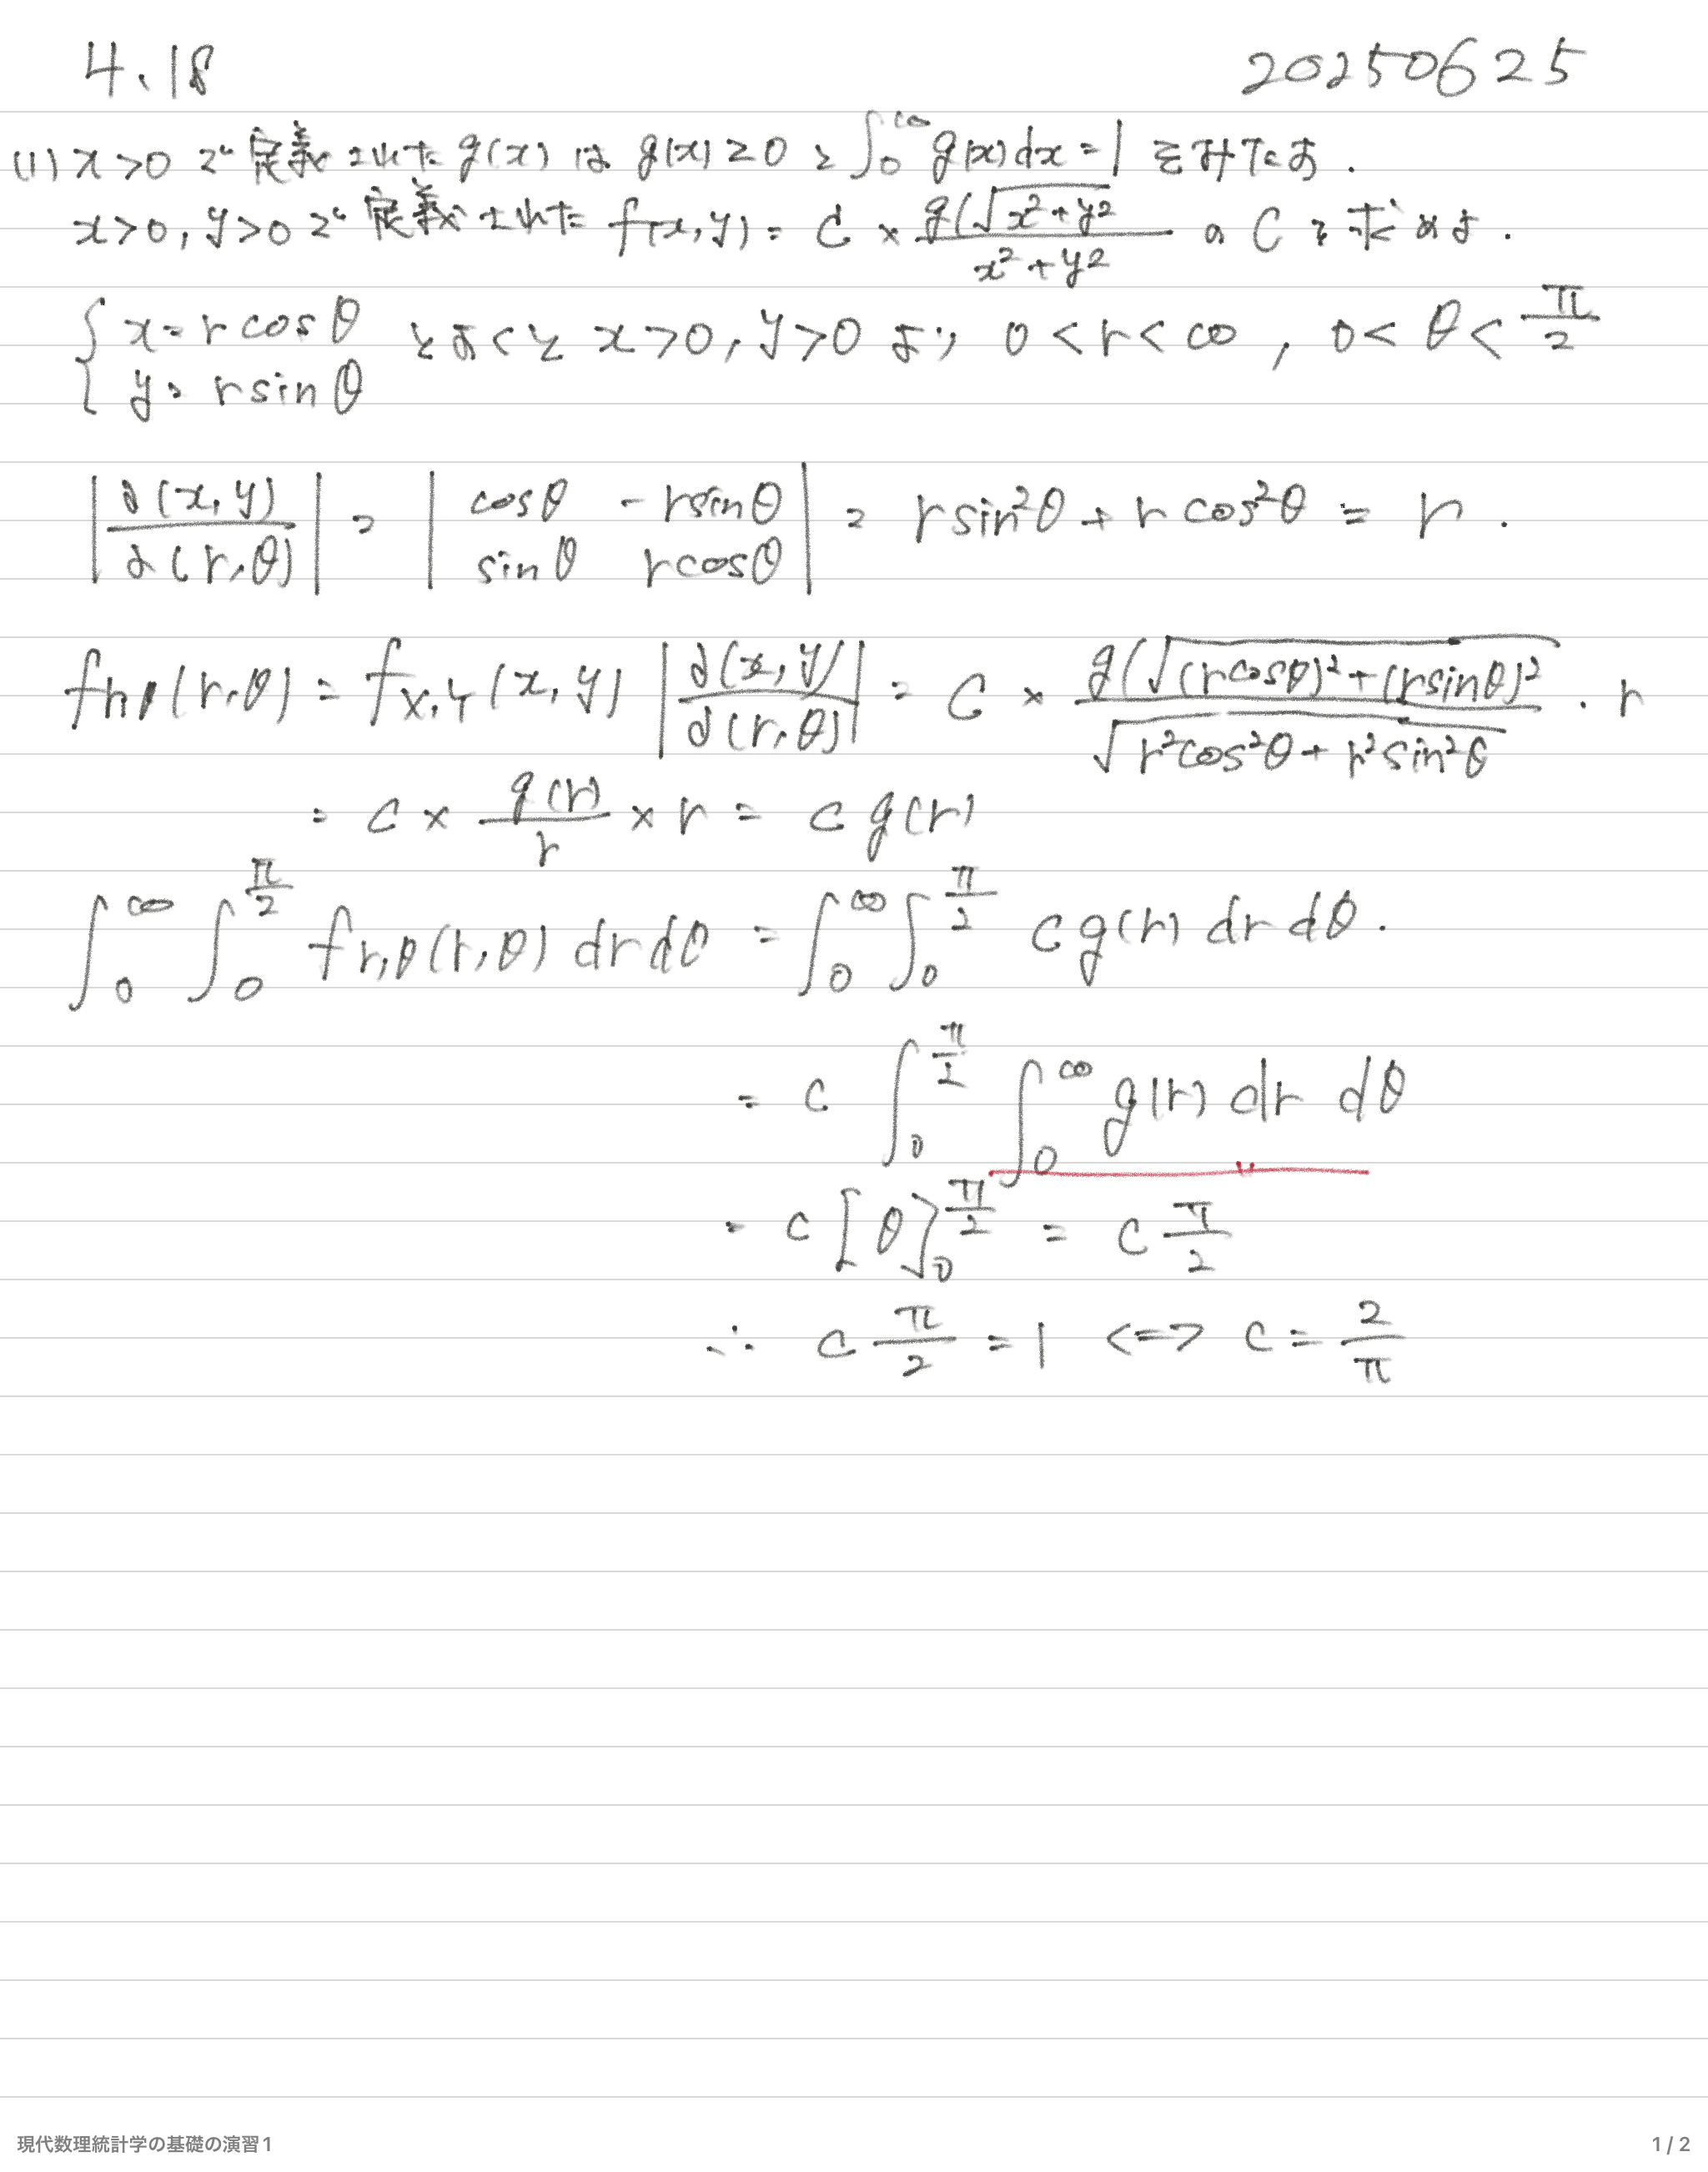 4.18 20250625
(1) x>0 で定義された g(x) は g(x) ≥ 0 と ∫_0^∞ g(x)dx = 1 をみたす.
x>0, y>0 で定義された f(x,y) = C × g(√(x²+y²)) / (x²+y²) の C を求めよ.
{ x = r cosθ とおくと x>0, y>0 より 0<r<∞, 0<θ<π/2
y = r sinθ
|∂(x,y)/∂(r,θ)| = | cosθ -r sinθ | = r sin²θ + r cos²θ = r.
| sinθ r cosθ |
f_{r,θ}(r,θ) = f_{X,Y}(x,y) |∂(x,y)/∂(r,θ)| = C × g(√((r cosθ)²+(r sinθ)²) / √(r²cos²θ + r²sin²θ) · r
= C × g(r)/r × r = c g(r)
∫_0^∞ ∫_0^{π/2} f_{r,θ}(r,θ) dr dθ = ∫_0^∞ ∫_0^{π/2} c g(r) dr dθ.
= c ∫_0^{π/2} ∫_0^∞ g(r) dr dθ
= c [θ]_0^{π/2} = c π/2
∴ c π/2 = 1 <=> c = 2/π
現代数理統計学の基礎の演習1 1 / 2